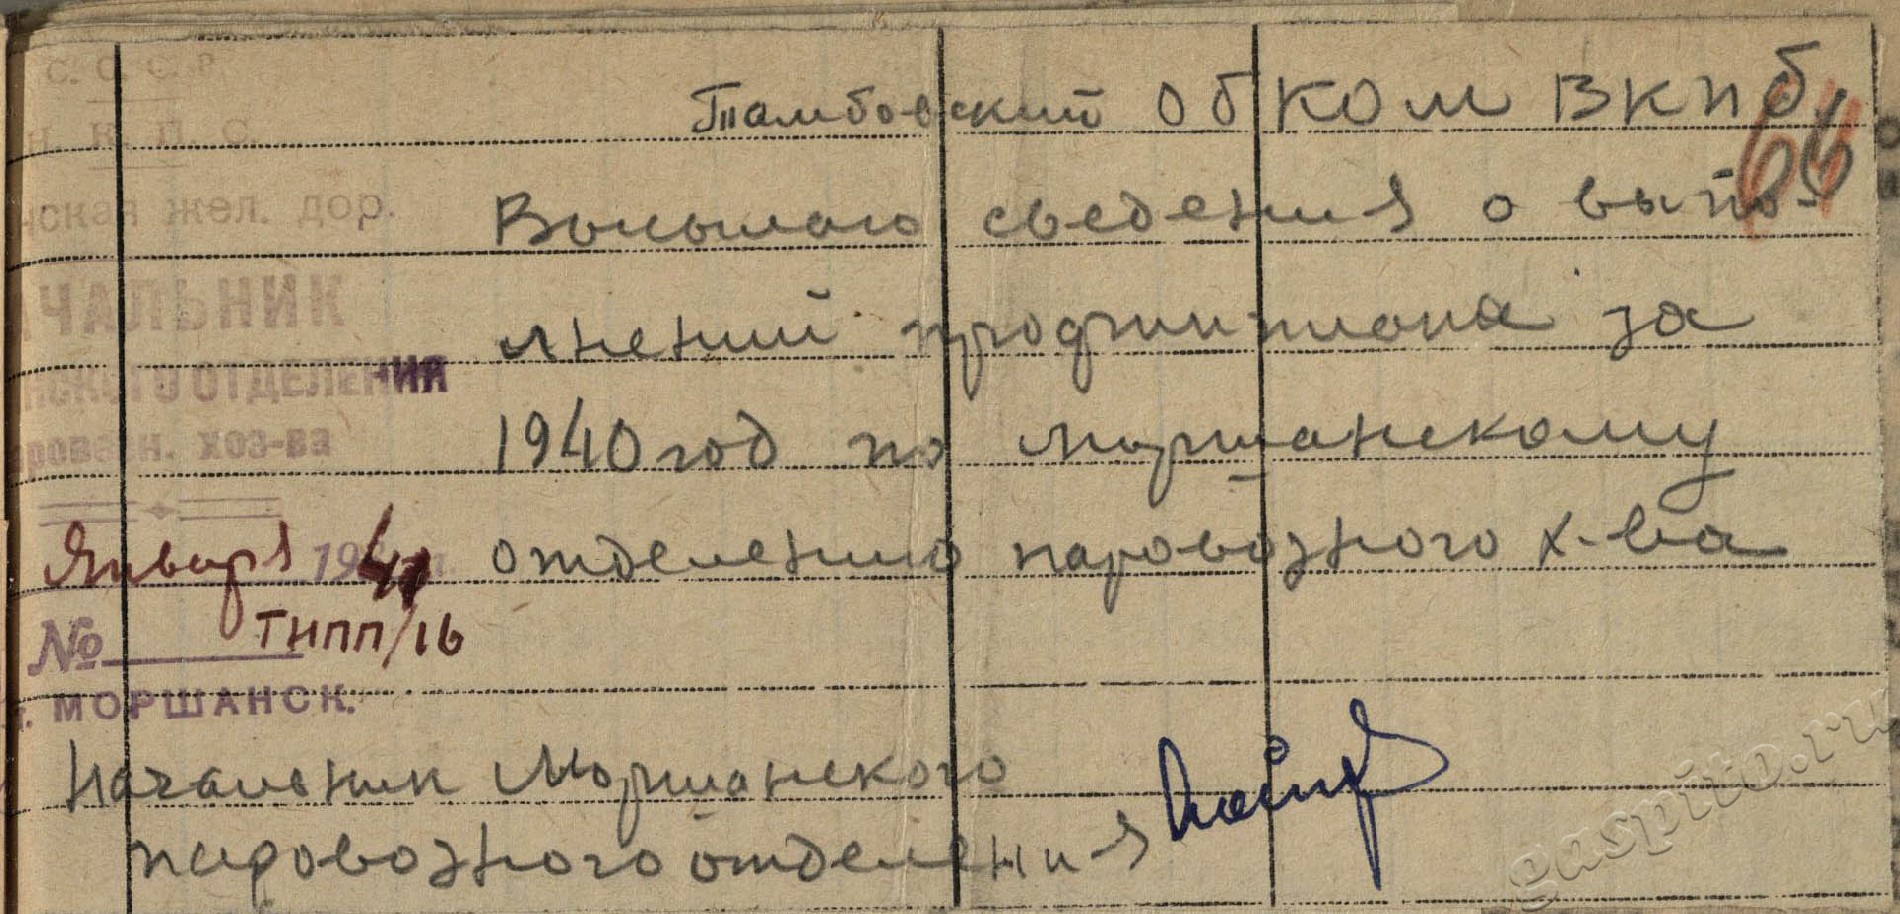 С. С. С. Р.
Н. К. П. С.
нская жел. дор.
ЧАЛЬНИК
НСКОГО ОТДЕЛЕНИЯ
аровозн. хоз-ва
Января 1941 г.
№ ТНПП/16
г. МОРШАНСК.
Тамбовский обком ВКПб.
64
Высылаю сведения о выпо-
лнений профинплана за
1940 год по Моршанскому
отделению паровозного х-ва
Начальник Моршанского
паровозного отделения
gaspito.ru